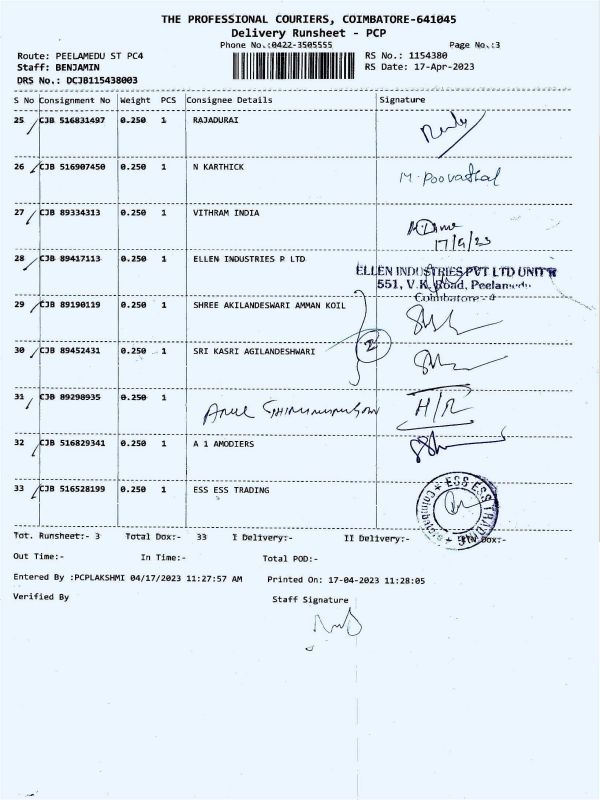 THE PROFESSIONAL COURIERS, COIMBATORE-641045
Delivery Runsheet - PCP
Phone No.:0422-3505555 Page No.:3
Route: PEELAMEDU ST PC4 RS No.: 1154380
Staff: BENJAMIN RS Date: 17-Apr-2023
DRS No.: DCJB115438003
S No Consignment No Weight PCS Consignee Details Signature
25 CJB 516831497 0.250 1 RAJADURAI
26 CJB 516907450 0.250 1 N KARTHICK M. Poovathal
27 CJB 89334313 0.250 1 VITHRAM INDIA
17/4/23
28 CJB 89417113 0.250 1 ELLEN INDUSTRIES P LTD
ELLEN INDUSTRIES PVT LTD UNIT
551, V.K. Road, Peelamedu
Coimbatore - 4
29 CJB 89190119 0.250 1 SHREE AKILANDESWARI AMMAN KOIL
2
30 CJB 89452431 0.250 1 SRI KASRI AGILANDESHWARI
31 CJB 89298935 0.250 1 H/R
32 CJB 516829341 0.250 1 A 1 AMODIERS
33 CJB 516528199 0.250 1 ESS ESS TRADING
ESS ESS TRADING Coimbatore
Tot. Runsheet:- 3 Total Dox:- 33 I Delivery:- II Delivery:- Dox:-
Out Time:- In Time:- Total POD:-
Entered By :PCPLAKSHMI 04/17/2023 11:27:57 AM Printed On: 17-04-2023 11:28:05
Verified By Staff Signature